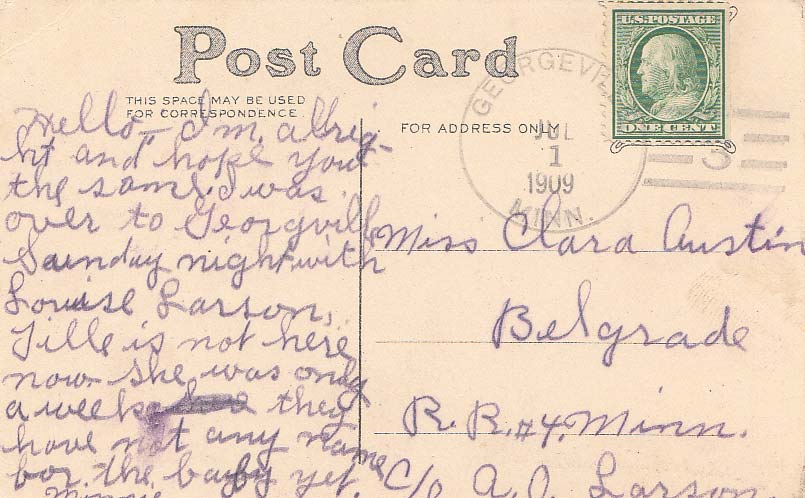 Post Card
THIS SPACE MAY BE USED
FOR CORRESPONDENCE.
FOR ADDRESS ONLY
U.S. POSTAGE
ONE CENT
GEORGEVI
JUL
1
1909
MINN.
3
Hello - I'm allrig-
ht and hope you
the same. I was
over to Georgvill
Saunday night with
Louise Larson,
Tille is not here
now she was only
a week they
have not any name
for the baby yet.
Minnie
Miss Clara Austin
Belgrade
R.R.#4. Minn.
C/o A.O. Larson.